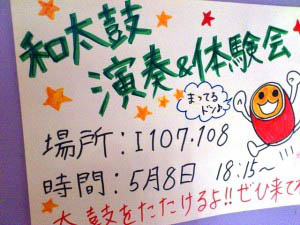 和太鼓
演奏&体験会
まってる
ドン♪
場所:I107,108
時間:5月8日 18:15~
太鼓をたたけるよ!!ぜひ来てネ